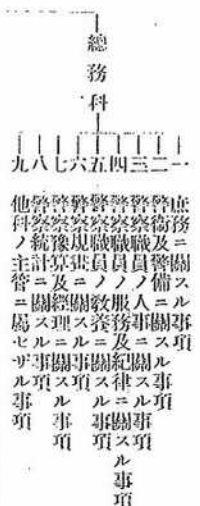 總務科
一 庶務ニ關スル事項
二 警衞及警備ニ關スル事項
三 警察職員ノ人事ニ關スル事項
四 警察職員ノ服務及紀律ニ關スル事項
五 警察職員ノ教養ニ關スル事項
六 警察規畫ニ關スル事項
七 警察豫算及經理ニ關スル事項
八 警察統計ニ關スル事項
九 他科ノ主管ニ屬セザル事項